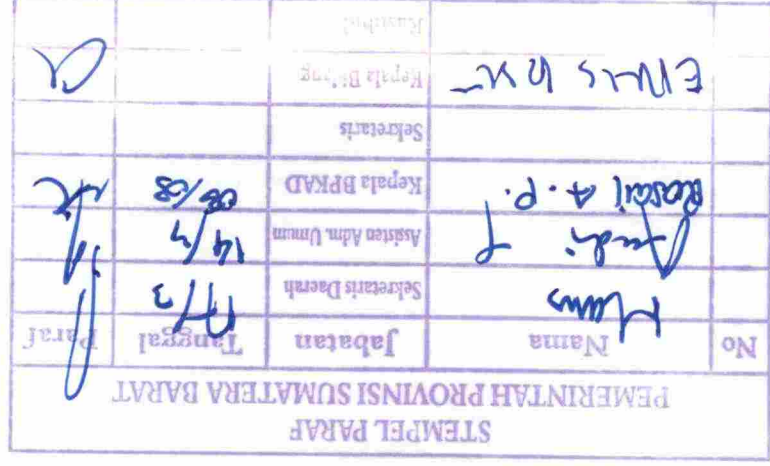 STEMPEL PARAF
PEMERINTAH PROVINSI SUMATERA BARAT
No Nama Jabatan Tanggal Paraf
Sekretaris Daerah 17/3
Andi Asisten Adm. Umum 14/3
Rosail A.P. Kepala BPKAD 08/03
Sekretaris
Kepala Bidang
Kasubid